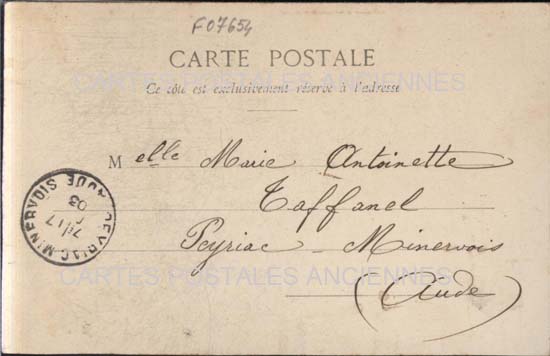 F07654
CARTE POSTALE
CARTES POSTALES ANCIENNES
Ce côté est exclusivement réservé à l'adresse
Melle Marie Antoinette
Taffanel
Peyriac-Minervois
(Aude)
PEYRIAC-MINERVOIS AUDE
03
CARTES POSTALES ANCIENNES